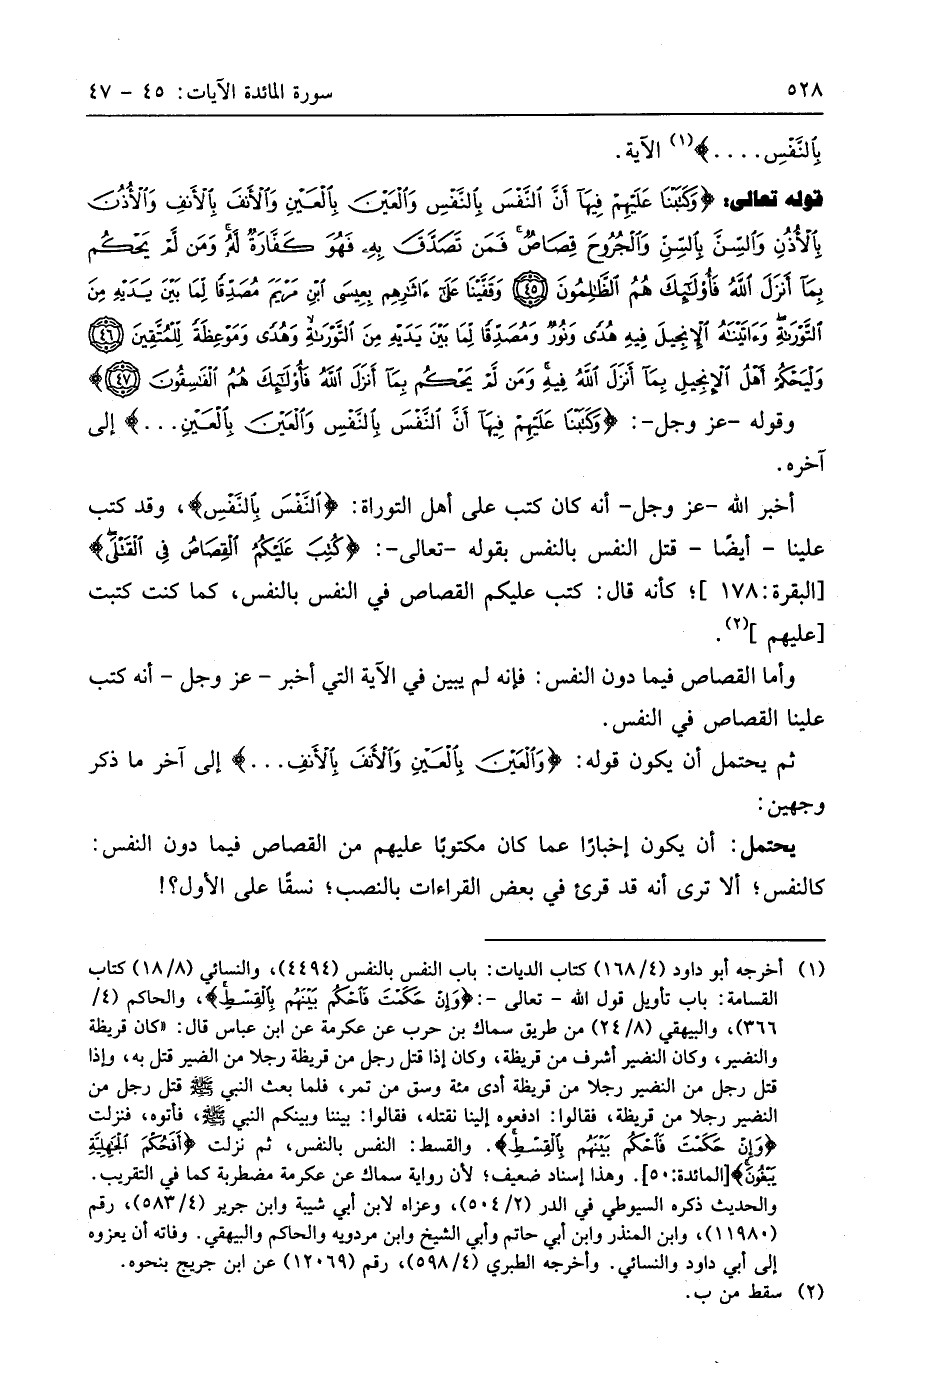 ٥٢٨
سورة المائدة الآيات: ٤٥ - ٤٧
بِٱلنَّفْسِ....﴾(١) الآية.
قوله تعالى: ﴿وَكَتَبْنَا عَلَيْهِمْ فِيهَآ أَنَّ ٱلنَّفْسَ بِٱلنَّفْسِ وَٱلْعَيْنَ بِٱلْعَيْنِ وَٱلْأَنفَ بِٱلْأَنفِ وَٱلْأُذُنَ
بِٱلْأُذُنِ وَٱلسِّنَّ بِٱلسِّنِّ وَٱلْجُرُوحَ قِصَاصٌ ۚ فَمَن تَصَدَّقَ بِهِۦ فَهُوَ كَفَّارَةٌ لَّهُۥ ۚ وَمَن لَّمْ يَحْكُم
بِمَآ أَنزَلَ ٱللَّهُ فَأُوْلَـٰٓئِكَ هُمُ ٱلظَّالِمُونَ ﴿٤٥﴾ وَقَفَّيْنَا عَلَىٰٓ ءَاثَـٰرِهِم بِعِيسَى ٱبْنِ مَرْيَمَ مُصَدِّقًا لِّمَا بَيْنَ يَدَيْهِ مِنَ
ٱلتَّوْرَىٰةِ ۖ وَءَاتَيْنَـٰهُ ٱلْإِنجِيلَ فِيهِ هُدًى وَنُورٌ وَمُصَدِّقًا لِّمَا بَيْنَ يَدَيْهِ مِنَ ٱلتَّوْرَىٰةِ وَهُدًى وَمَوْعِظَةً لِّلْمُتَّقِينَ ﴿٤٦﴾
وَلْيَحْكُمْ أَهْلُ ٱلْإِنجِيلِ بِمَآ أَنزَلَ ٱللَّهُ فِيهِ ۚ وَمَن لَّمْ يَحْكُم بِمَآ أَنزَلَ ٱللَّهُ فَأُوْلَـٰٓئِكَ هُمُ ٱلْفَـٰسِقُونَ ﴿٤٧﴾﴾
وقوله -عز وجل-: ﴿وَكَتَبْنَا عَلَيْهِمْ فِيهَآ أَنَّ ٱلنَّفْسَ بِٱلنَّفْسِ وَٱلْعَيْنَ بِٱلْعَيْنِ...﴾ إلى
آخره.
أخبر الله -عز وجل- أنه كان كتب على أهل التوراة: ﴿ٱلنَّفْسَ بِٱلنَّفْسِ﴾، وقد كتب
علينا - أيضًا - قتل النفس بالنفس بقوله -تعالى-: ﴿كُتِبَ عَلَيْكُمُ ٱلْقِصَاصُ فِى ٱلْقَتْلَى ۖ﴾
[البقرة: ١٧٨ ]؛ كأنه قال: كتب عليكم القصاص في النفس بالنفس، كما كنت كتبت
[عليهم ](٢).
وأما القصاص فيما دون النفس: فإنه لم يبين في الآية التي أخبر - عز وجل - أنه كتب
علينا القصاص في النفس.
ثم يحتمل أن يكون قوله: ﴿وَٱلْعَيْنَ بِٱلْعَيْنِ وَٱلْأَنفَ بِٱلْأَنفِ...﴾ إلى آخر ما ذكر
وجهين:
يحتمل: أن يكون إخبارًا عما كان مكتوبًا عليهم من القصاص فيما دون النفس:
كالنفس؛ ألا ترى أنه قد قرئ في بعض القراءات بالنصب؛ نسقًا على الأول؟!
(١) أخرجه أبو داود (١٦٨/٤) كتاب الديات: باب النفس بالنفس (٤٤٩٤)، والنسائي (١٨/٨) كتاب
القسامة: باب تأويل قول الله - تعالى -: ﴿وَإِنْ حَكَمْتَ فَٱحْكُم بَيْنَهُم بِٱلْقِسْطِ ۚ﴾، والحاكم (٤/
٣٦٦)، والبيهقي (٢٤/٨) من طريق سماك بن حرب عن عكرمة عن ابن عباس قال: «كان قريظة
والنضير، وكان النضير أشرف من قريظة، وكان إذا قتل رجل من قريظة رجلا من الضير قتل به، وإذا
قتل رجل من النضير رجلا من قريظة أدى مئة وسق من تمر، فلما بعث النبي ﷺ قتل رجل من
النضير رجلا من قريظة، فقالوا: ادفعوه إلينا نقتله، فقالوا: بيننا وبينكم النبي ﷺ، فأتوه، فنزلت
﴿وَإِنْ حَكَمْتَ فَٱحْكُم بَيْنَهُم بِٱلْقِسْطِ ۚ﴾. والقسط: النفس بالنفس، ثم نزلت ﴿أَفَحُكْمَ ٱلْجَـٰهِلِيَّةِ
يَبْغُونَ ۚ﴾[المائدة: ٥٠]. وهذا إسناد ضعيف؛ لأن رواية سماك عن عكرمة مضطربة كما في التقريب.
والحديث ذكره السيوطي في الدر (٥٠٤/٢)، وعزاه لابن أبي شيبة وابن جرير (٥٨٣/٤)، رقم
(١١٩٨٠)، وابن المنذر وابن أبي حاتم وأبي الشيخ وابن مردويه والحاكم والبيهقي. وفاته أن يعزوه
إلى أبي داود والنسائي. وأخرجه الطبري (٥٩٨/٤)، رقم (١٢٠٦٩) عن ابن جريج بنحوه.
(٢) سقط من ب.